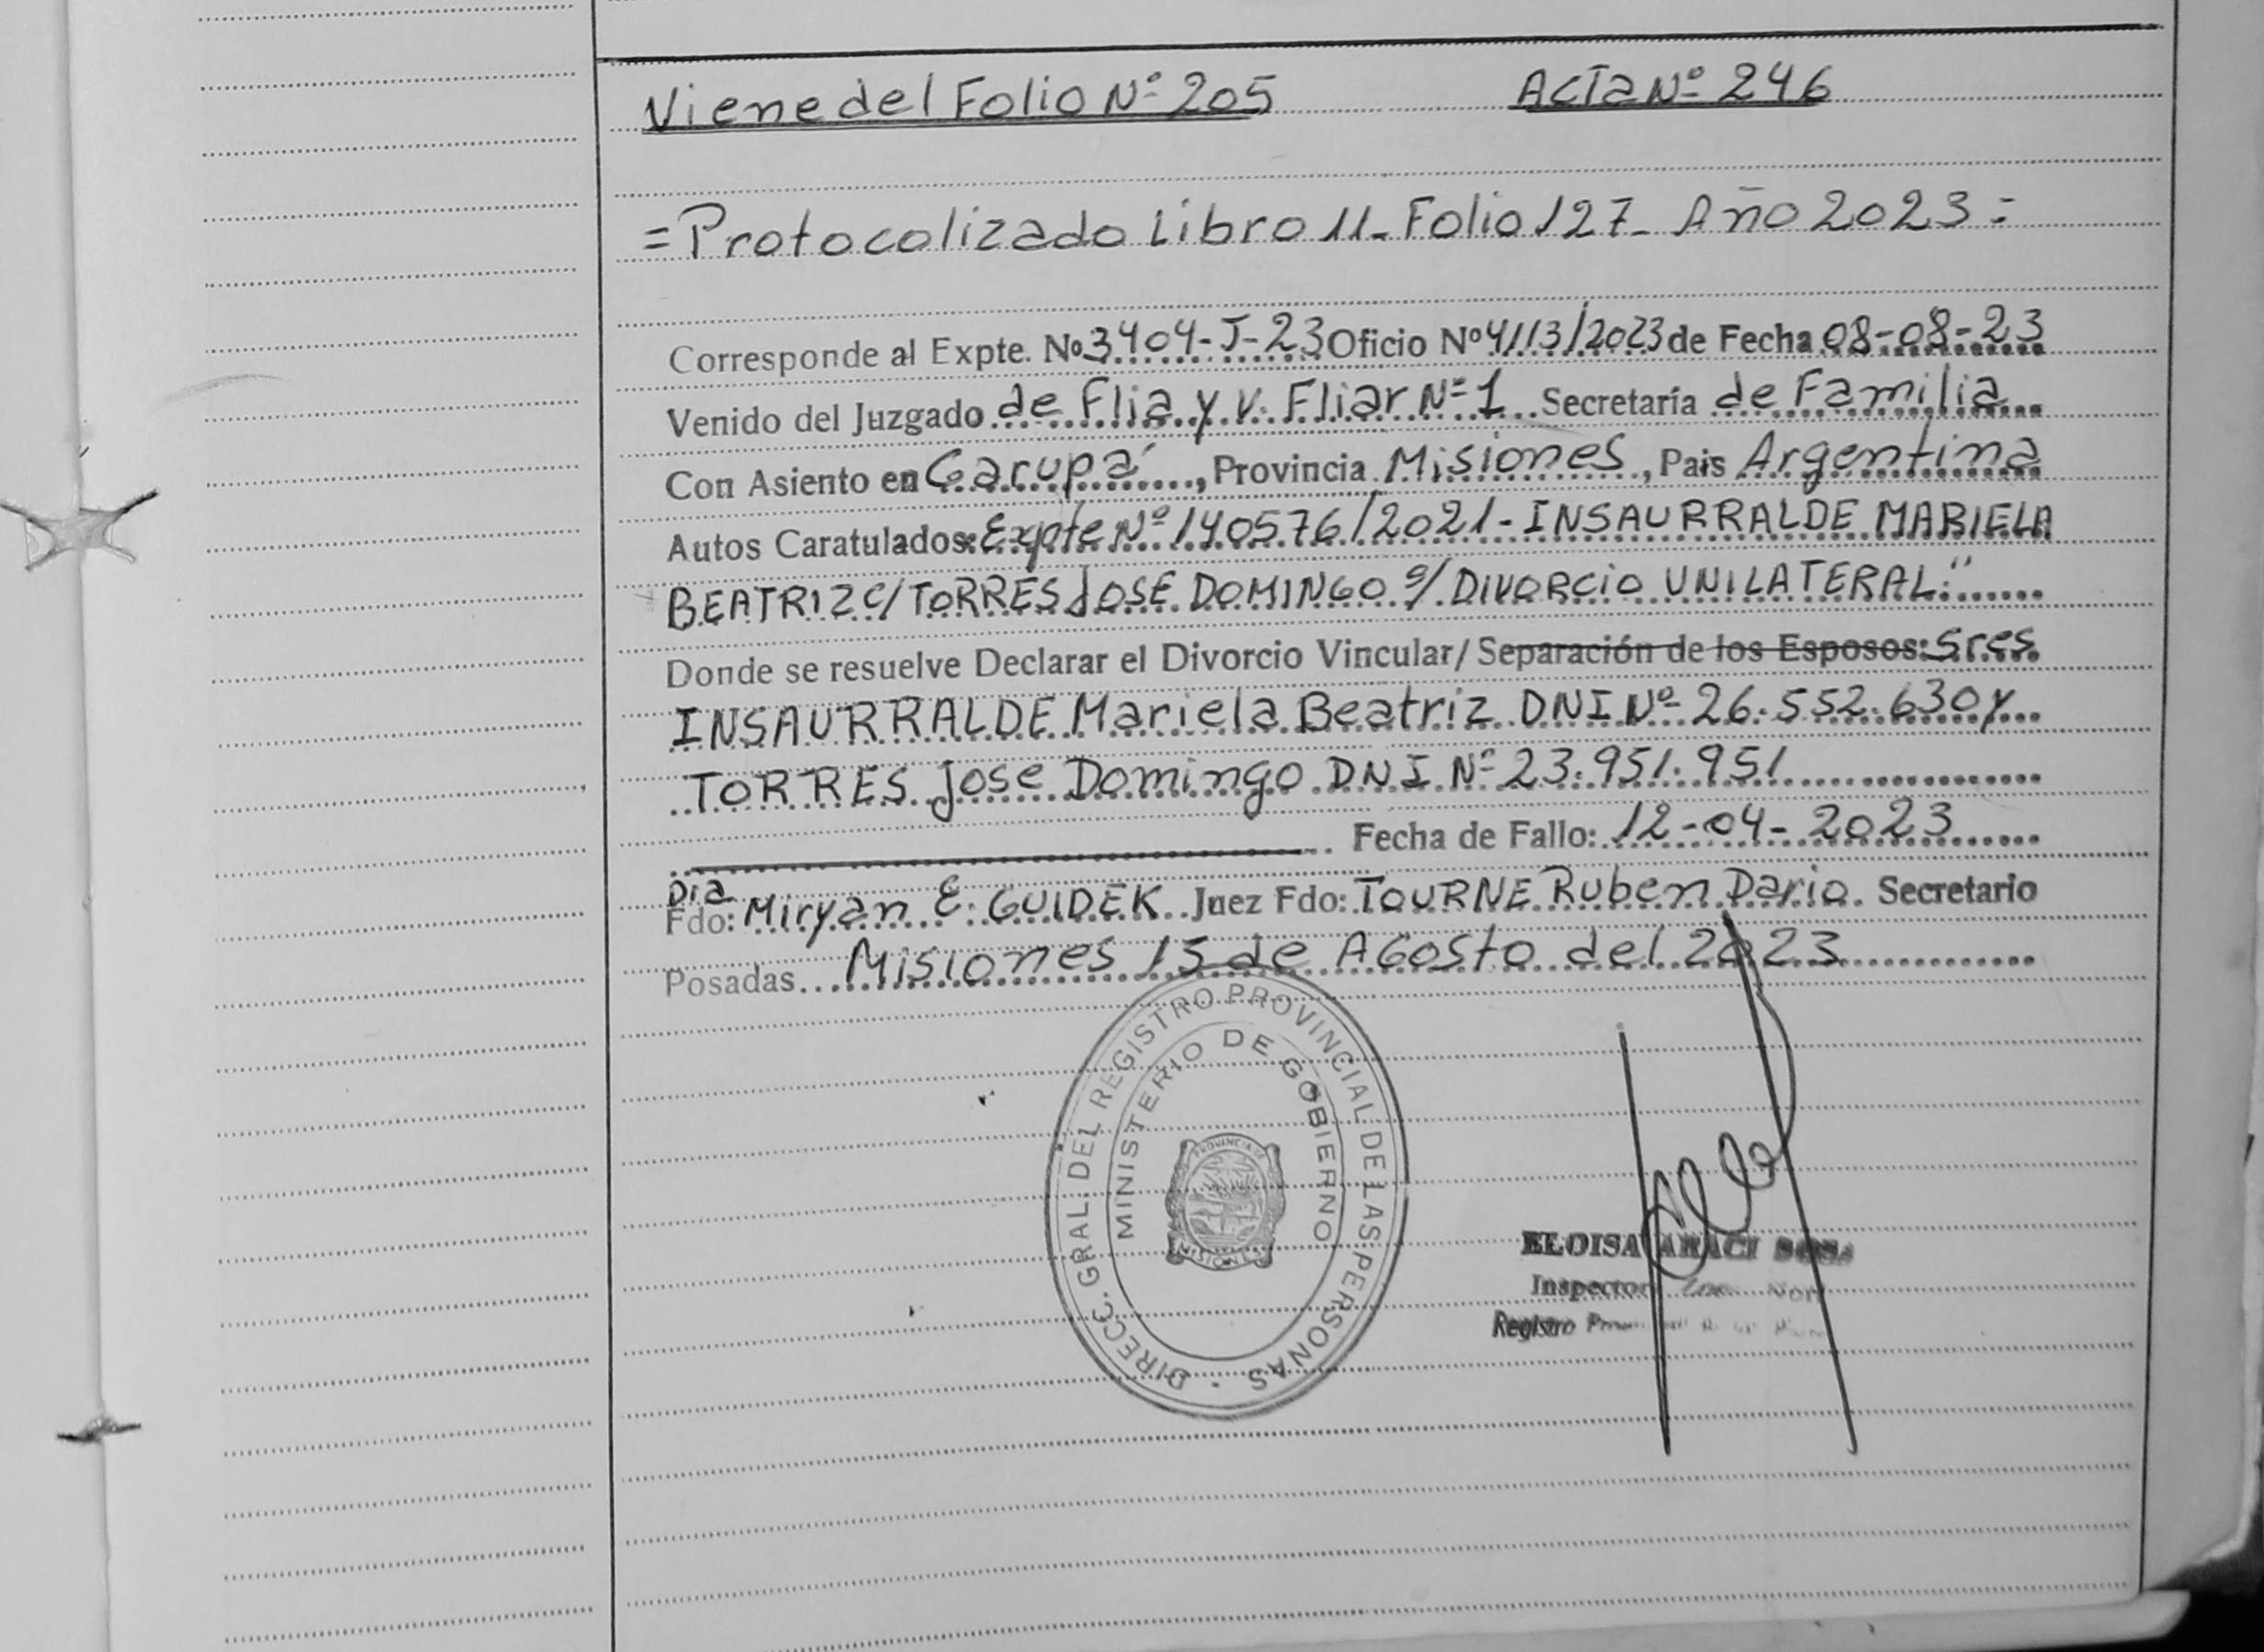 Viene del Folio Nº 205 Acta Nº 246
= Protocolizado Libro 11 - Folio 127 - Año 2023 =
Corresponde al Expte. Nº 3404-J-23 Oficio Nº 4113/2023 de Fecha 08-08-23
Venido del Juzgado de Flia y V. Fliar Nº 1 Secretaría de Familia
Con Asiento en Garupá, Provincia Misiones, Pais Argentina
Autos Caratulados: Expte Nº 140576/2021 - INSAURRALDE MARIELA
BEATRIZ c/ TORRES JOSE DOMINGO s/ DIVORCIO UNILATERAL."
Donde se resuelve Declarar el Divorcio Vincular/ Separación de los Esposos: Sres
INSAURRALDE Mariela Beatriz DNI Nº 26.552.630 y
TORRES Jose Domingo DNI Nº 23.951.951
Fecha de Fallo: 12-04-2023
Dra
Fdo: Miryan E. GUIDEK Juez Fdo: TOURNE Ruben Dario. Secretario
Posadas Misiones 15 de Agosto del 2023
DIRECC. GRAL. DEL REGISTRO PROVINCIAL DE LAS PERSONAS
MINISTERIO DE GOBIERNO
PROVINCIA DE
MISIONES
ELOISA ARACI SOSA
Inspector
Registro